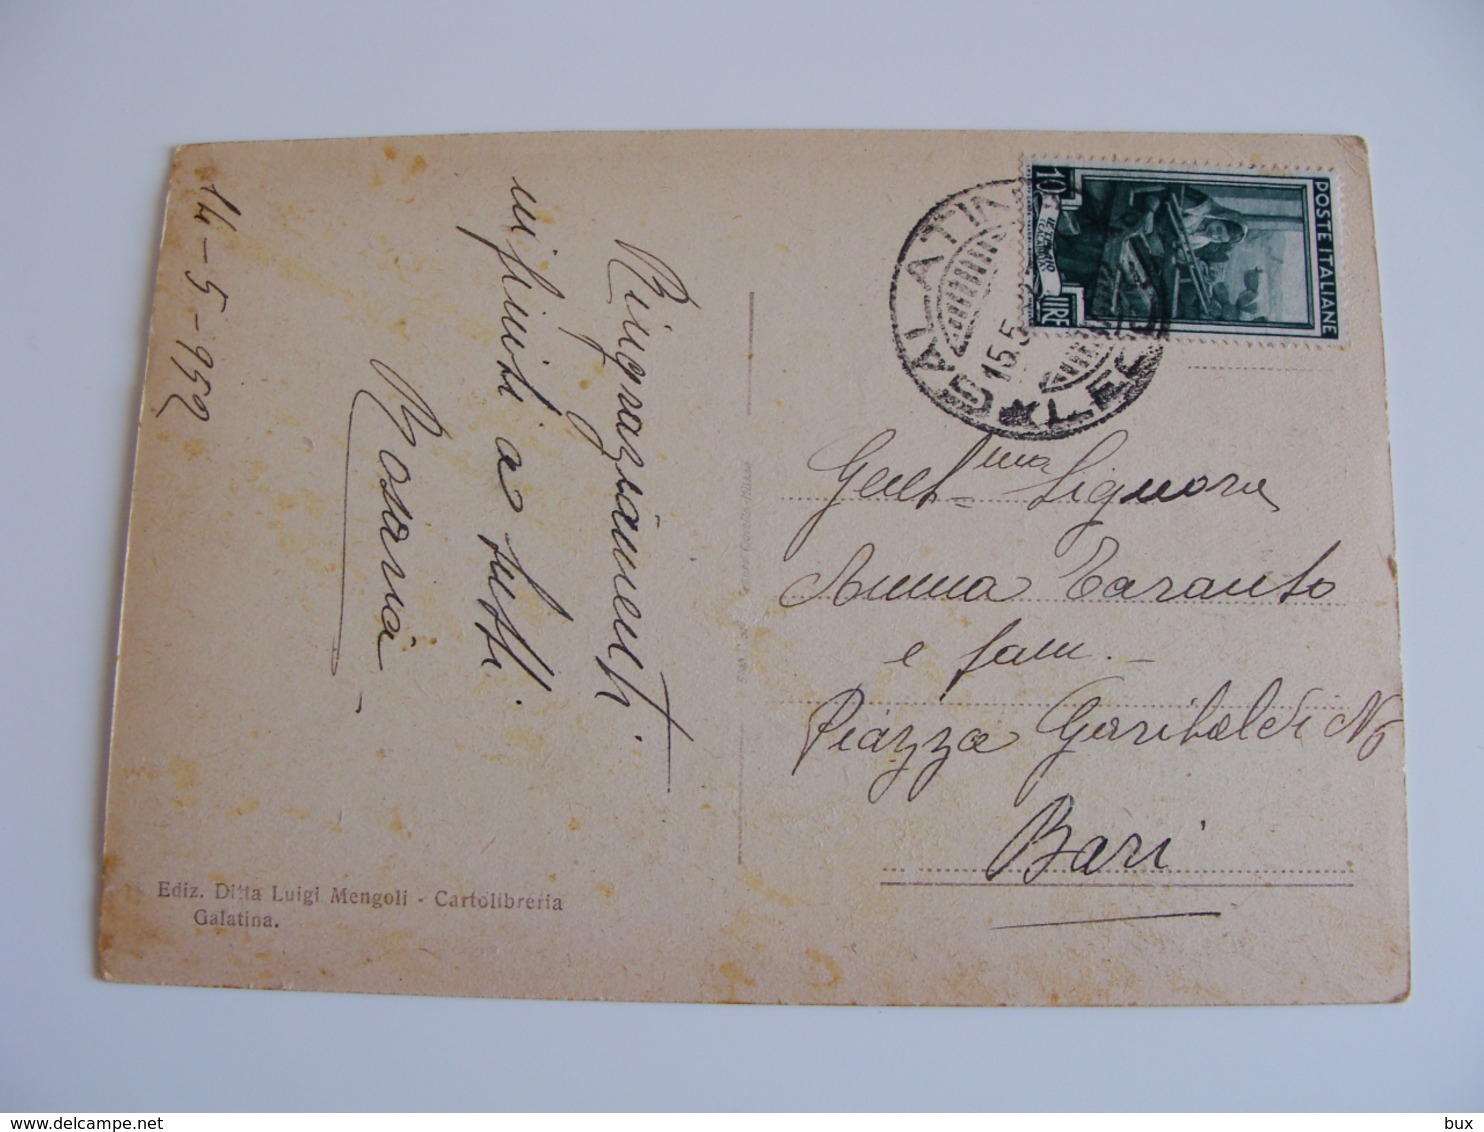 14-5-952
Ringraziamenti
infiniti a tutti.
Rosaria
Ediz. Ditta Luigi Mengoli - Cartolibreria
Galatina.
POSTE ITALIANE
10
LIRE
GALATINA
15.5
(LECCE)
Gent.ma Signora
Anna Taranto
e fam.
Piazza Garibaldi N 6
Bari
www.delcampe.net
bux